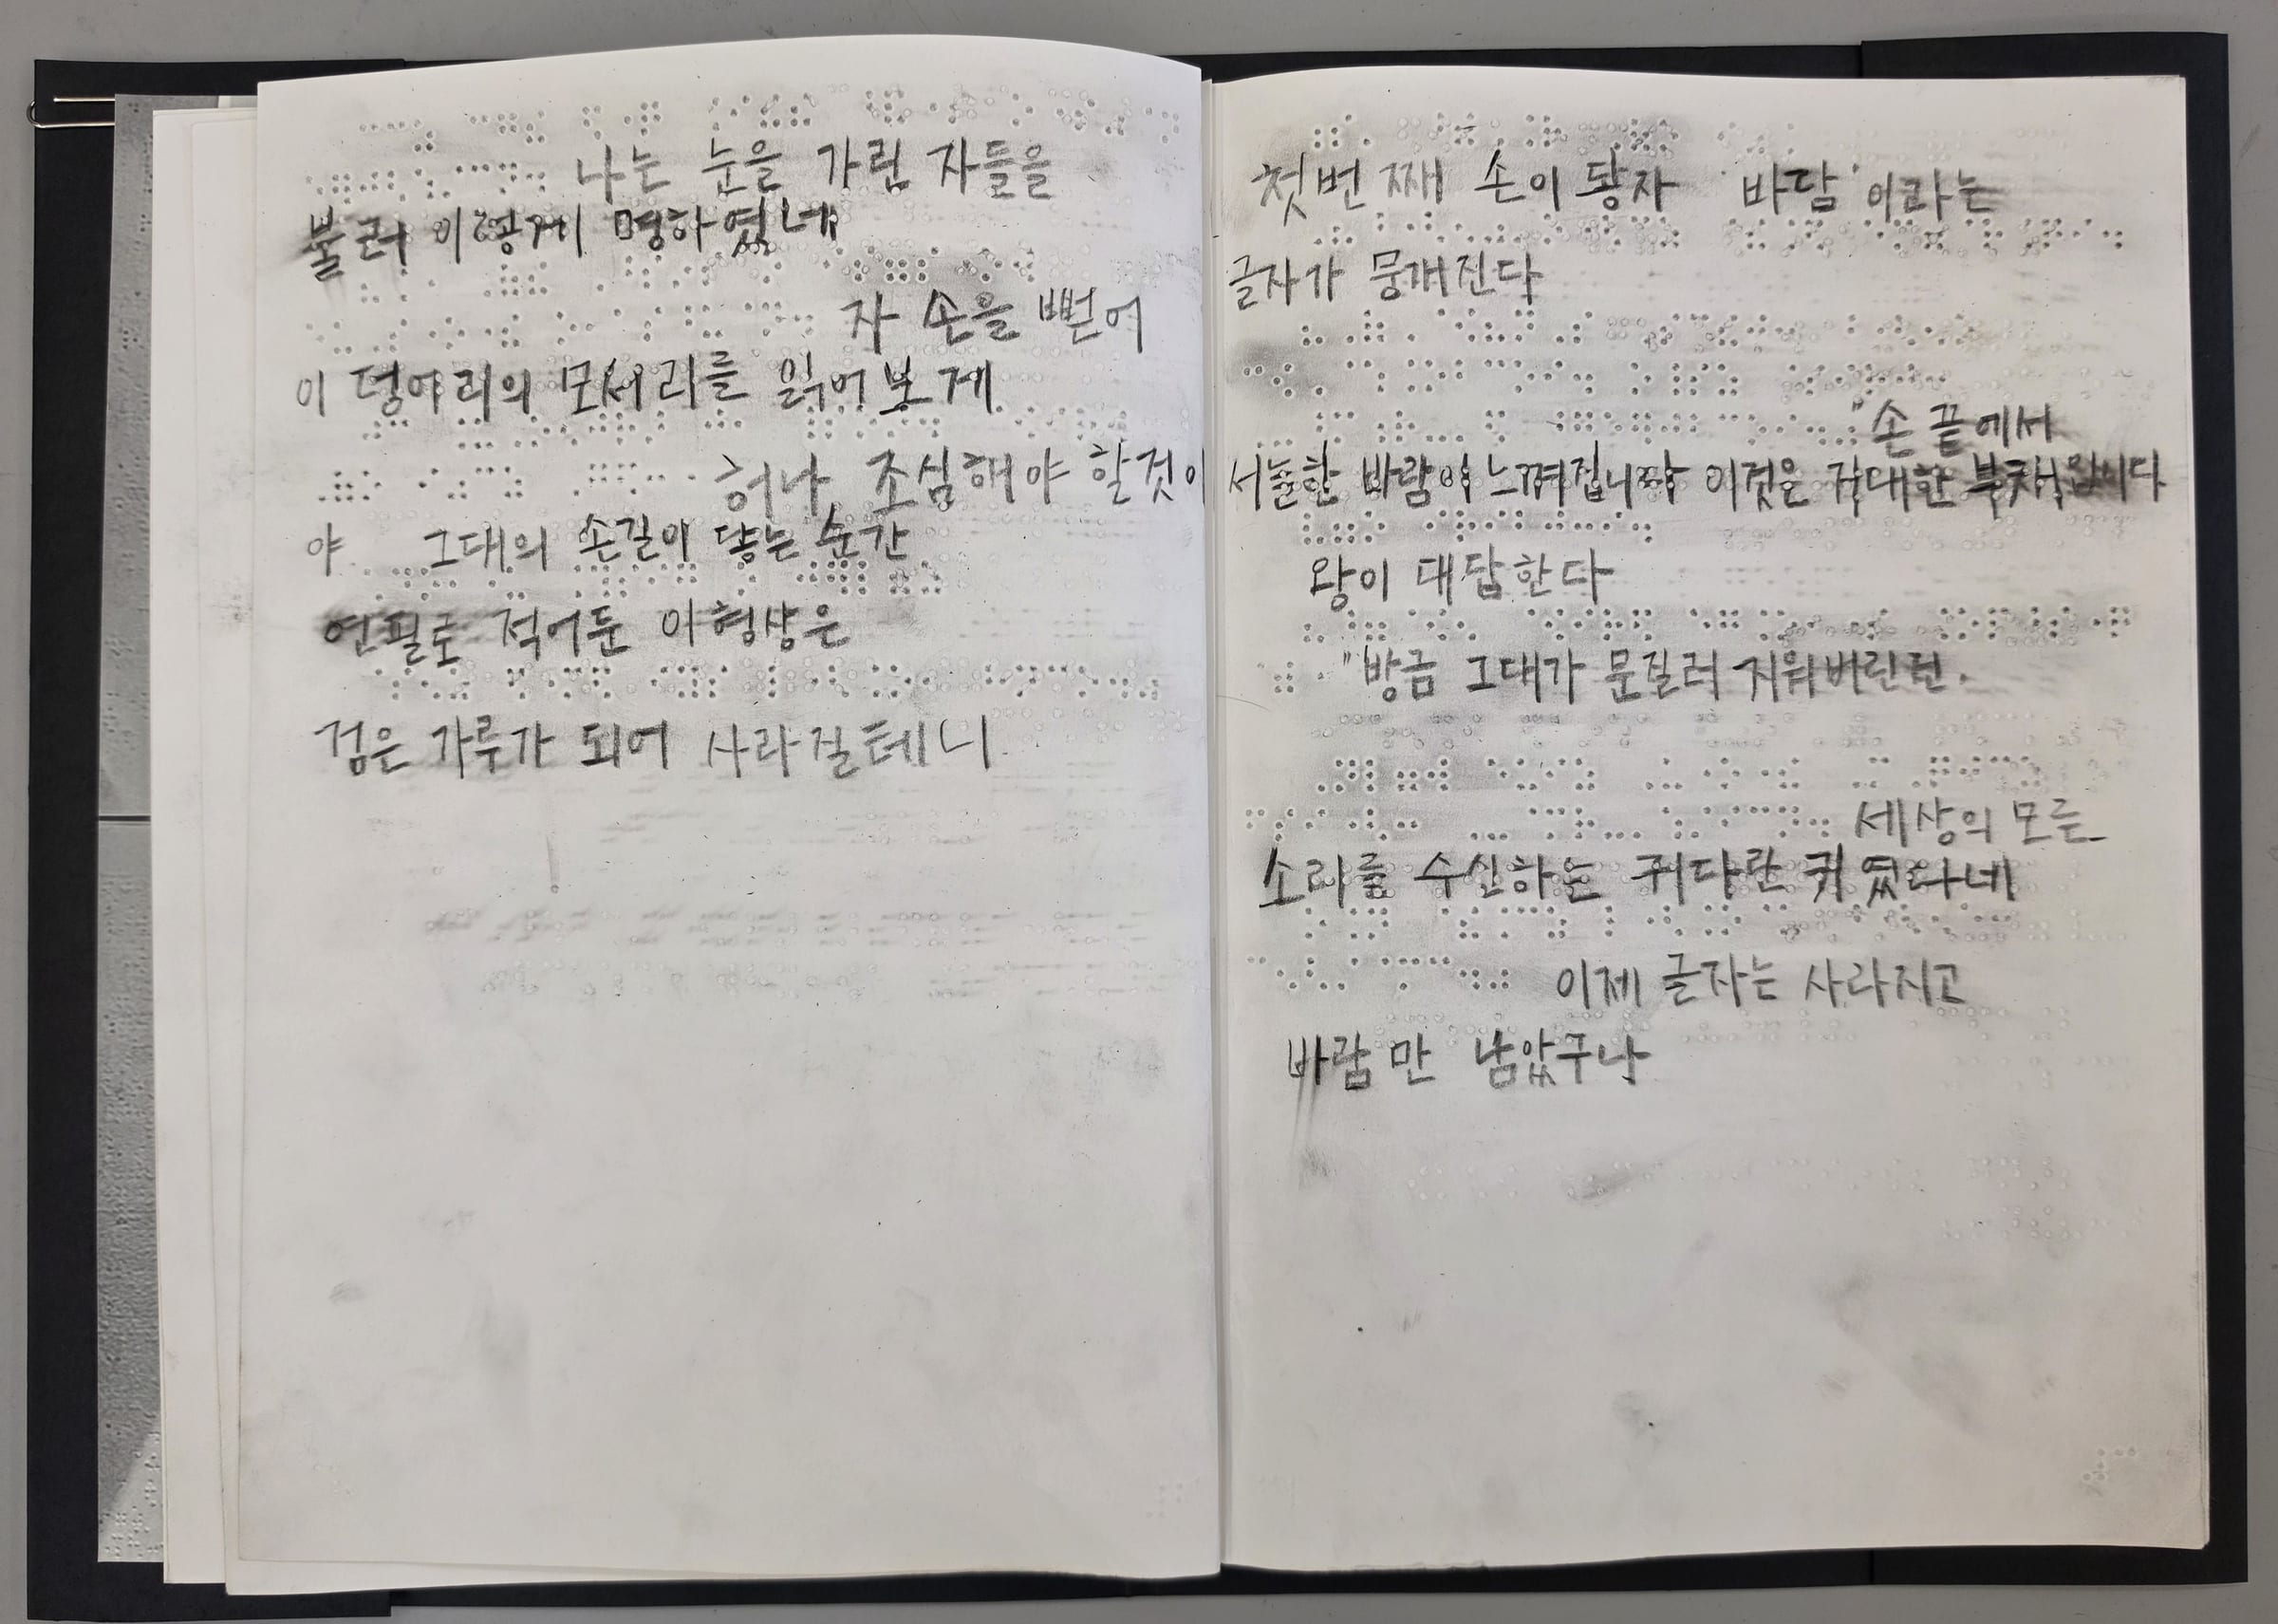 나는 눈을 가린 자들을
불러 이렇게 명하였네
자 손을 뻗어
이 덩어리의 모서리를 읽어보게
허나 조심해야 할것이
야 그대의 손길이 닿는 순간
연필로 적어둔 이 형상은
검은 가루가 되어 사라질테니
첫번째 손이 닿자 '바람'이라는
글자가 뭉개진다
"손 끝에서
서늘한 바람이 느껴집니다 이것은 거대한 부채입니다
왕이 대답한다
"방금 그대가 문질러 지워버린건.
세상의 모든
소리를 수신하는 커다란 귀였다네
이제 글자는 사라지고
바람만 남았구나